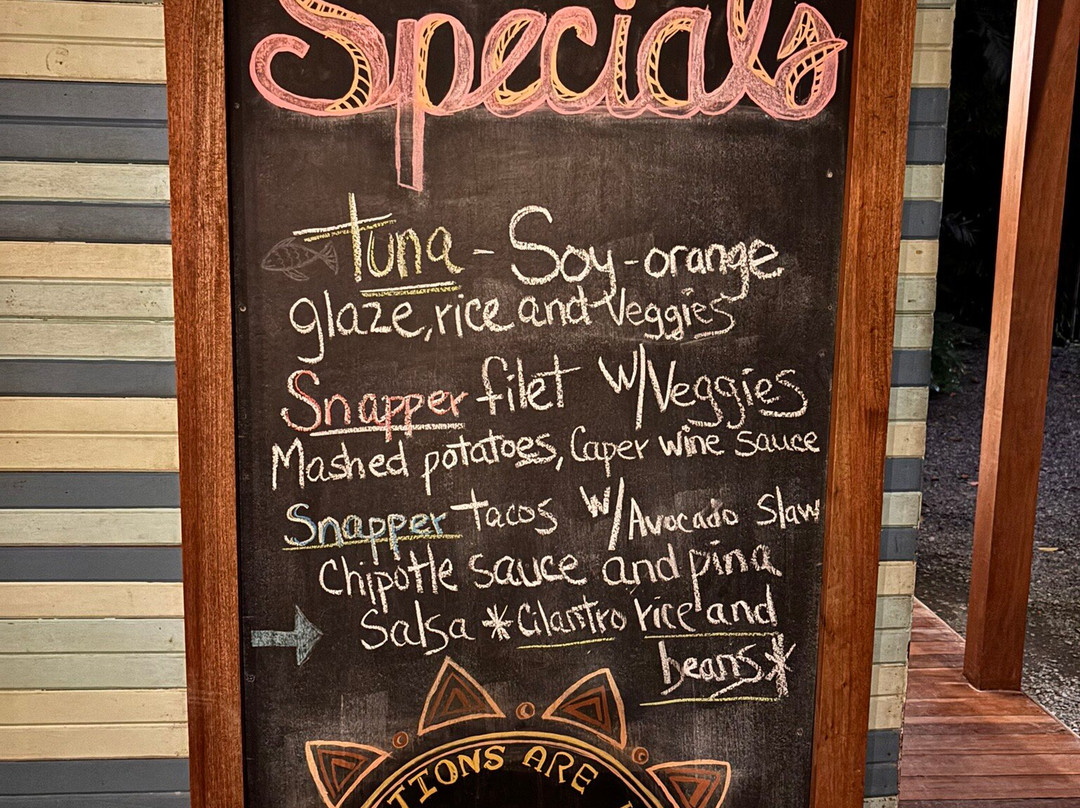 Specials
Tuna - Soy-orange
glaze, rice and Veggies
Snapper filet w/Veggies
Mashed potatoes, Caper wine sauce
Snapper tacos w/Avocado slaw
Chipotle sauce and pina
Salsa *Cilantro rice and
beans.*
TIONS ARE